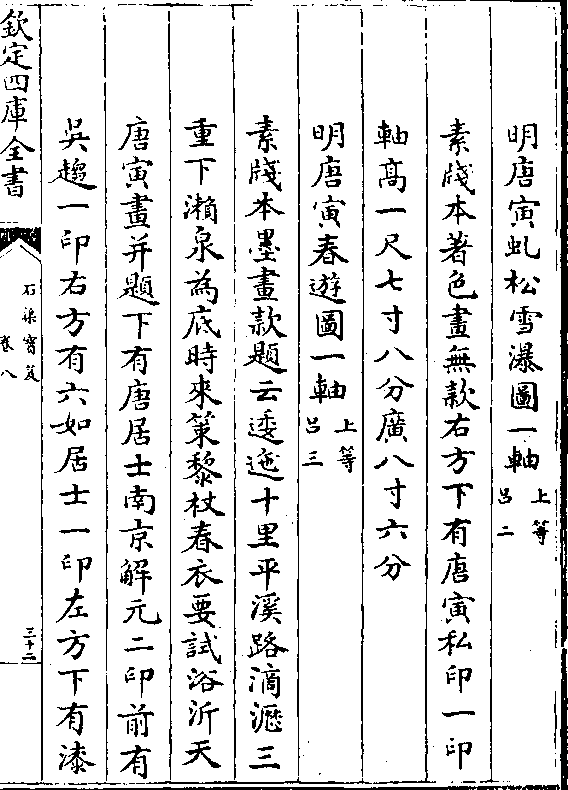 明唐寅虬松雪瀑圖一軸上等呂二
素牋本著色畫無款右方下有唐寅私印一印
軸髙一尺七寸八分廣八寸六分
明唐寅春遊圖一軸上等呂三
素牋本墨畫款題云逶迤十里平溪路滴瀝三
重下瀨泉為底時來䇿黎杖春衣要試浴沂天
唐寅畫并題下有唐居士南京解元二印前有
吳趨一印右方有六如居士一印左方下有漆
欽定四庫全書
石渠寳笈
卷八
三十二